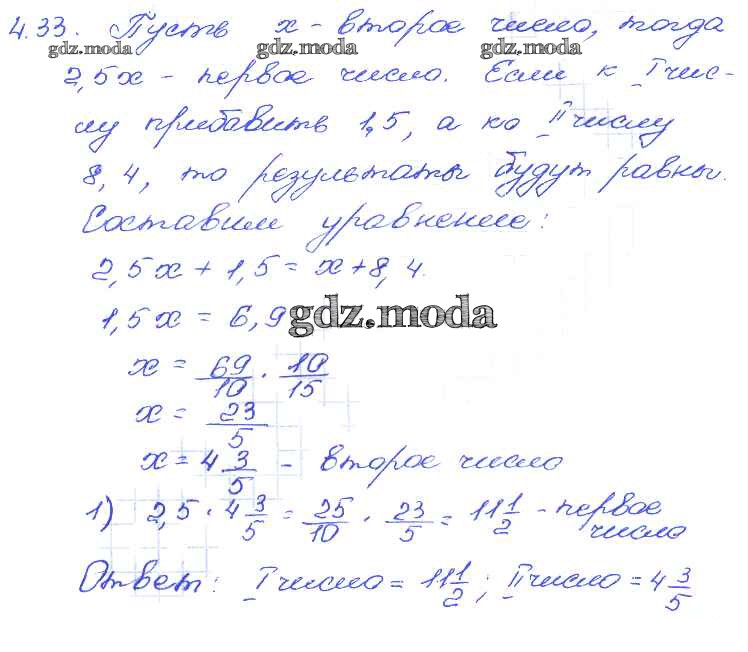 4.33. Пусть x - второе число, тогда
gdz.moda gdz.moda gdz.moda
2,5x - первое число. Если к I чис-
лу прибавить 1,5, а ко II числу
8,4, то результаты будут равны.
Составим уравнение:
2,5x + 1,5 = x + 8,4.
1,5x = 6,9
gdz.moda
x = 69/10 · 10/15
x = 23/5
x = 4 3/5 - второе число
1) 2,5 · 4 3/5 = 25/10 · 23/5 = 11 1/2 - первое
число
Ответ: I число = 11 1/2; II число = 4 3/5